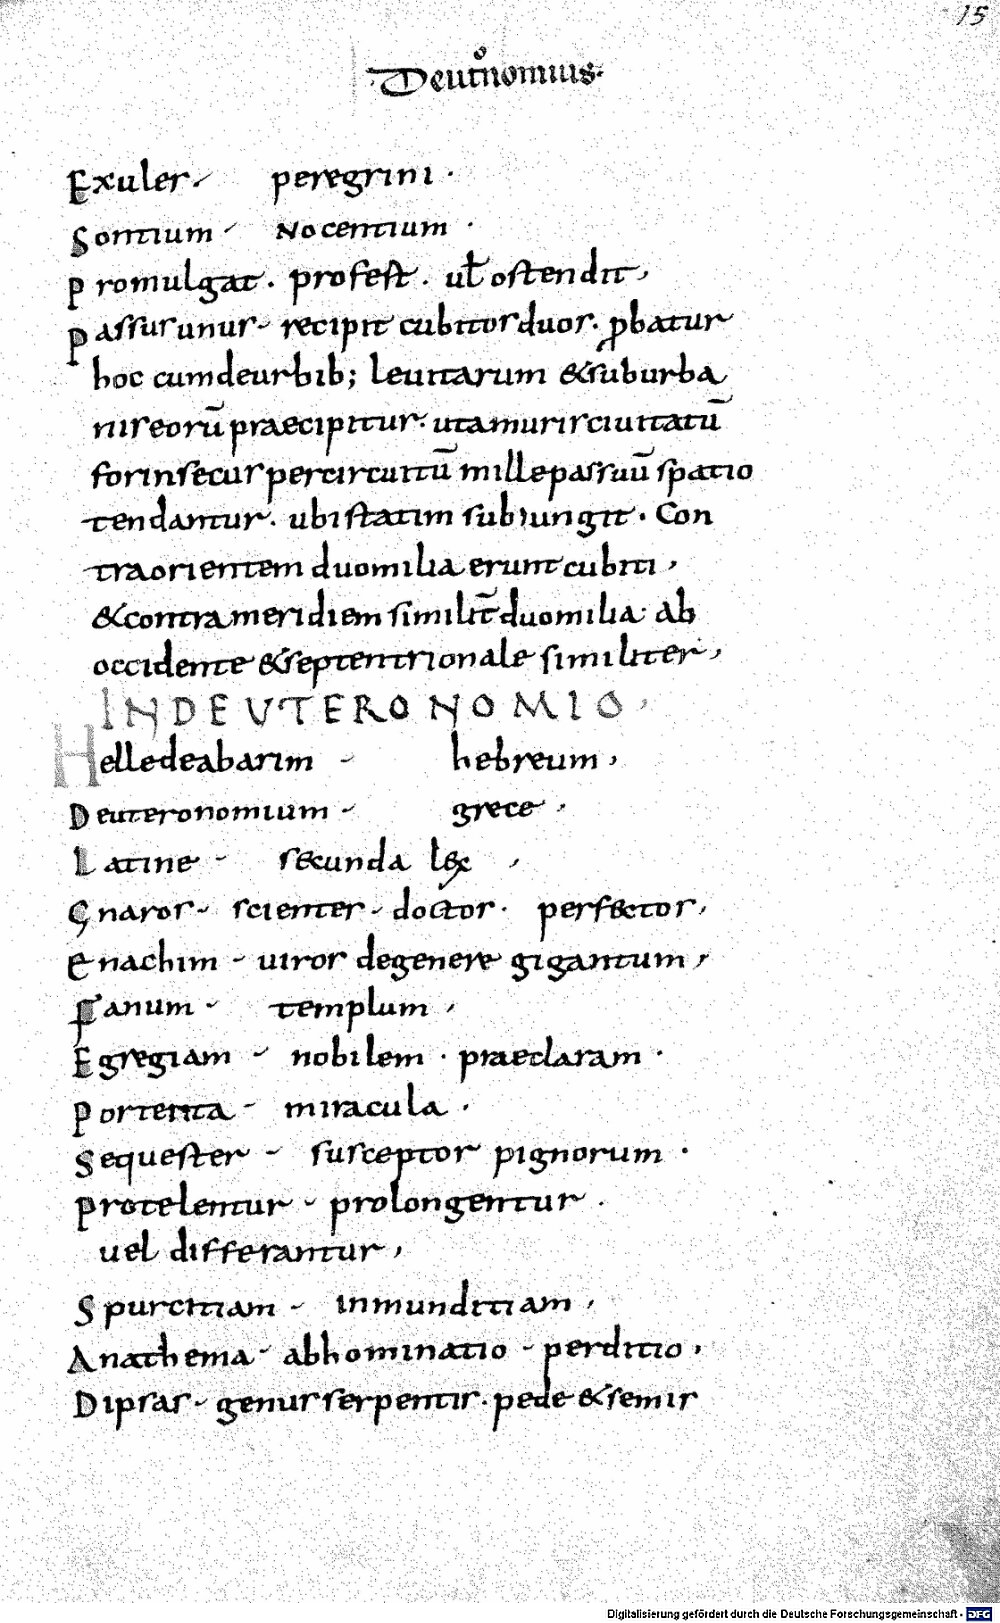 15
Deut͛nomius.
Exules. peregrini.
Sontium - Nocentium.
Promulgat. profest. ul̄ ostendit,
Passus unus - recipit cubitos duos. ꝓbatur
hoc cum de urbib; leuitarum & suburba
nis eorū praecipitur. ut a muris ciuitatū
forinsecus per circuitū mille passuū spatio
tendantur. ubi statim subiungit. Con
tra orientem duo milia erunt cubiti,
& contra meridiem similit̄ duo milia. ab
occidente & septentrionale similiter,
IN DEUTERONOMIO,
Helledeabarim - hebreum,
Deuteronomium - grece,
Latine - secunda lex,
Gnaros - scienter - doctos. perfectos,
Enachim - uiros de genere gigantum,
Fanum - templum,
Egregiam - nobilem. praeclaram.
Portenta - miracula.
Sequester - susceptor pignorum.
Protelentur - prolongentur.
uel differantur,
Spurcitiam - inmunditiam,
Anathema - abhominatio - perditio,
Dipsas - genus serpentis. pede & semis
Digitalisierung gefördert durch die Deutsche Forschungsgemeinschaft - DFG